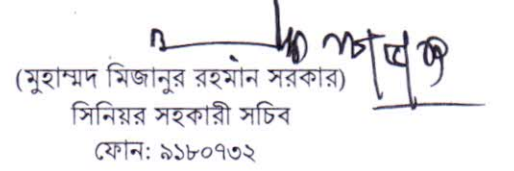 (মুহাম্মদ মিজানুর রহমান সরকার)
সিনিয়র সহকারী সচিব
ফোন: ৯১৮০৭৩২